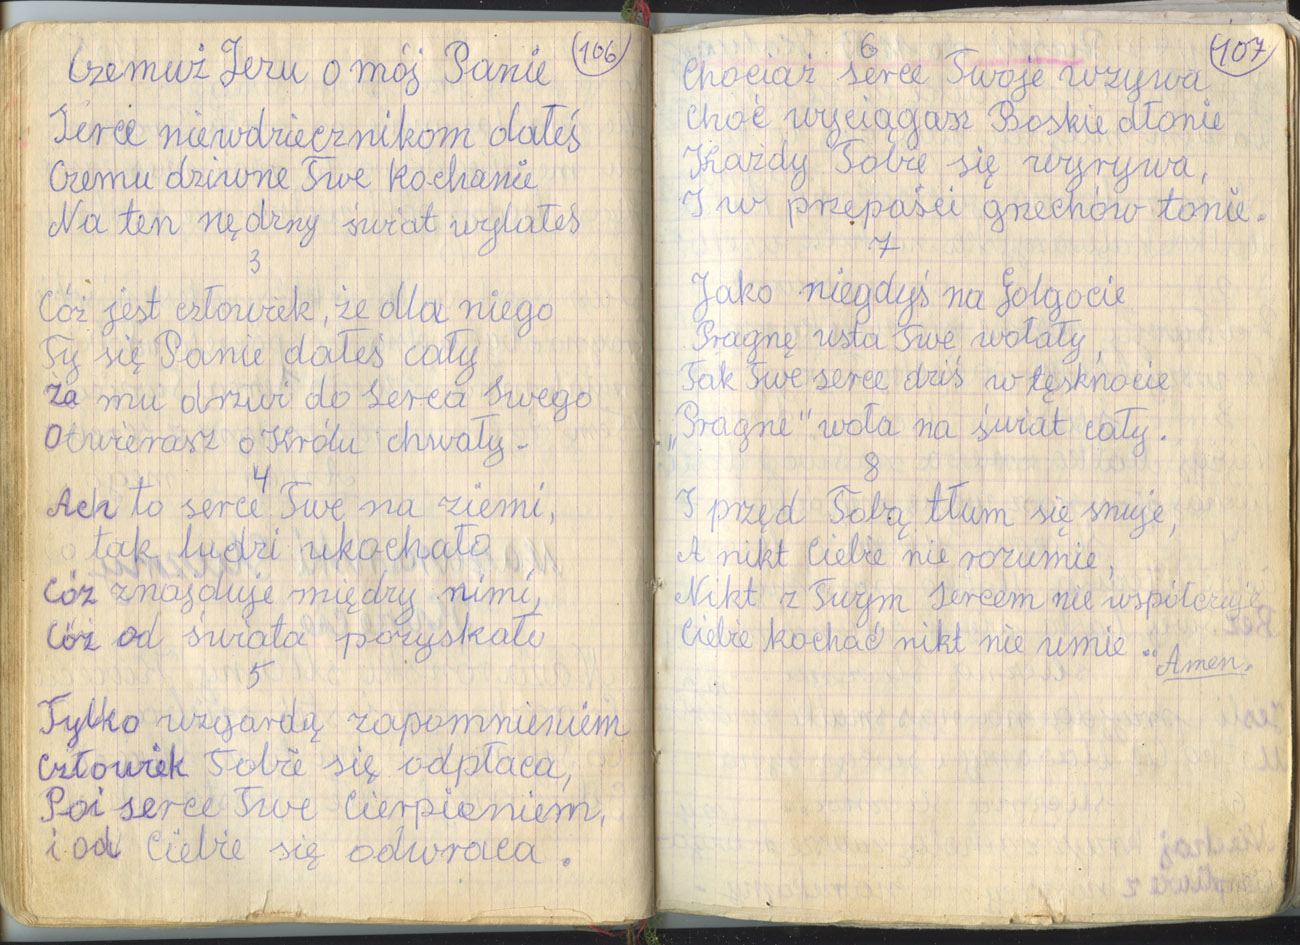 Czemuż Jezu o mój Panie
106
Serce niewdziecznikom dałeś
Czemu dziwne Twe kochanie
Na ten nędzny świat wylałeś
3
Cóż jest człowiek, że dla niego
Ty się Panie dałeś cały
Za mu drzwi do Serca Swego
Otwierasz o Królu chwały -
4
Ach to serce Twe na ziemi,
tak ludzi ukochało
Cóż znajduje między nimi,
Cóż od świata pozyskało
5
Tylko wzgardą zapomnieniem
Człowiek Tobie się odpłaca,
Poi serce Twe Cierpieniem,
i od Ciebie się odwraca.
107
6
Chociaż serce Twoje wzywa
Choć wyciągasz Boskie dłonie
Każdy Tobie się wyrywa,
I w przepaści grzechów tonie.
7
Jako niegdyś na Golgocie
Pragnę usta Twe wołały,
Tak Twe serce dziś w tęsknocie
„Pragne" woła na świat cały.
8
I przęd Tobą tłum się snuje,
A nikt Ciebie nie rozumie,
Nikt z Twym Sercem nie współczuje
Ciebie kochać nikt nie umie."
Amen.